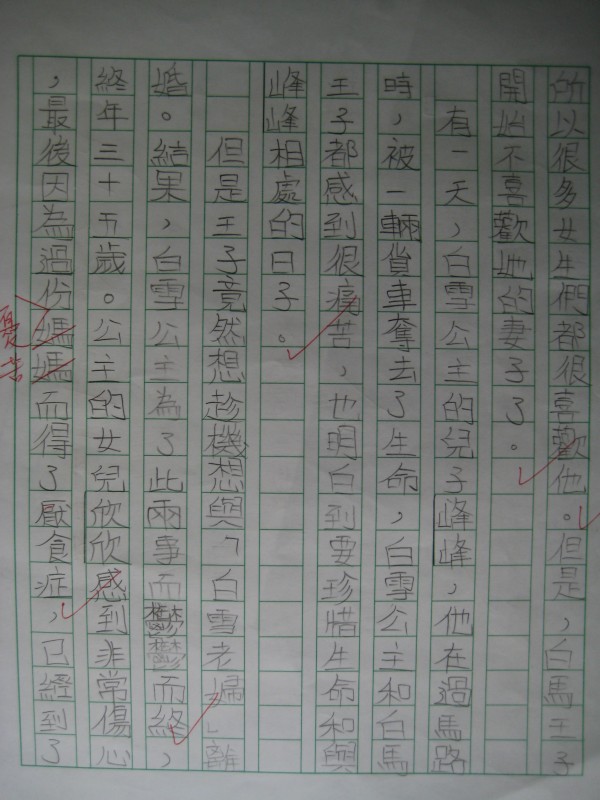 所以很多女生們都很喜歡他。但是,白馬王子
開始不喜歡她的妻子了。
有一天,白雪公主的兒子峰峰,他在過馬路
時,被一輛貨車奪去了生命,白雪公主和白馬
王子都感到很痛苦,也明白到要珍惜生命和與
峰峰相處的日子。
但是王子竟然想趁機想與「白雪老婦」離
婚。結果,白雪公主為了此兩事而鬱鬱而終,
終年三十五歲。公主的女兒欣欣感到非常傷心
,最後因為過份媽媽而得了厭食症,已經到了